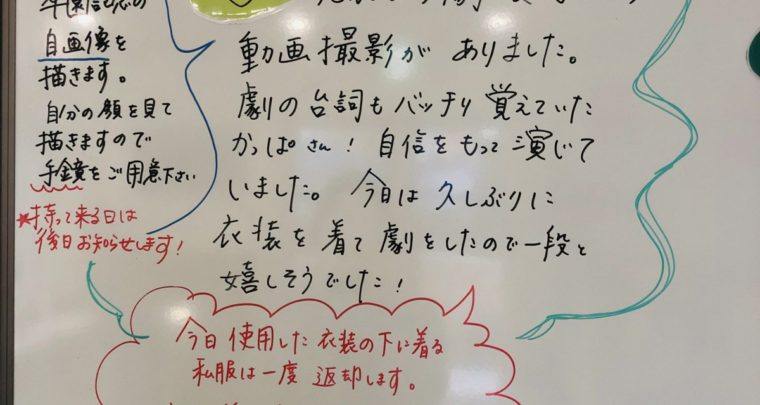 自画像を
描きます。
自分の顔を見て
描きますので
手鏡をご用意下さい
★持って来る日は
後日お知らせします!
動画撮影がありました。
劇の台詞もバッチリ覚えていた
かっぱさん!自信をもって演じて
いました。今日は久しぶりに
衣装を着て劇をしたので一段と
嬉しそうでした!
今日使用した衣装の下に着る
私服は一度返却します。